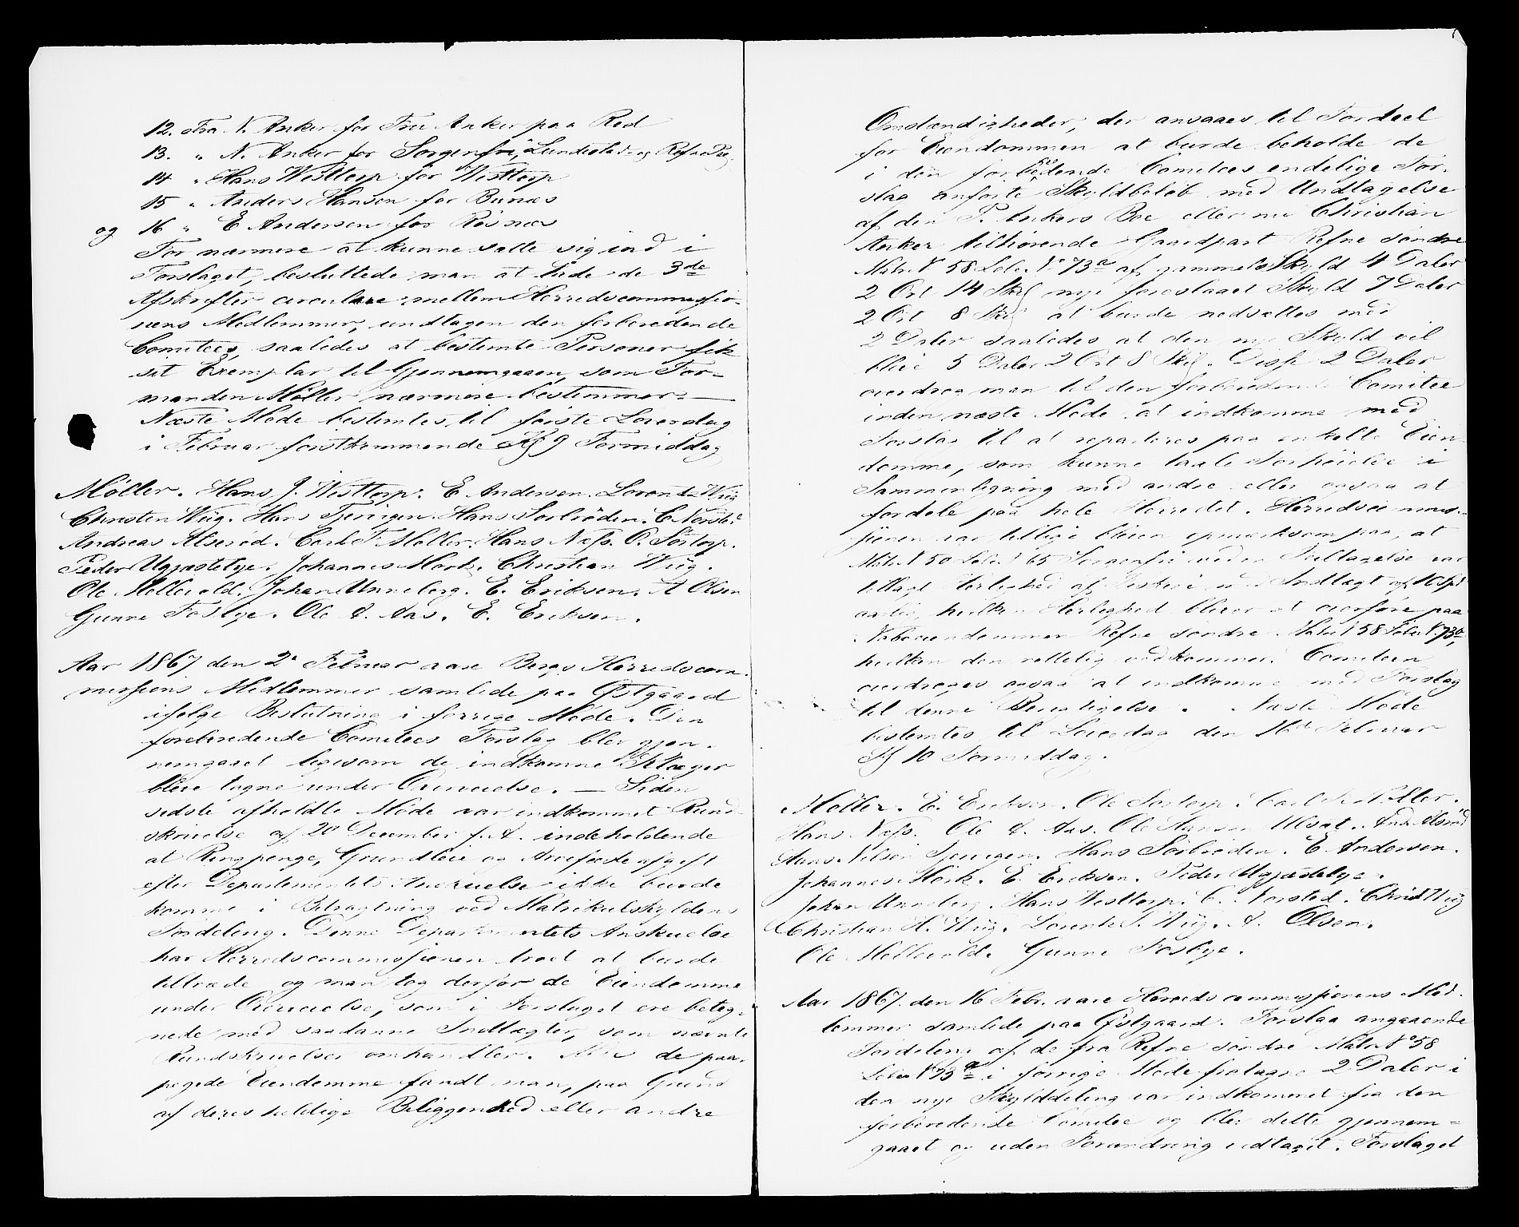 12. Fra N. Anker for Fru Anker paa Rød
13. " N. Anker for Sorgenfri, Lundestad og Refne
14 " Hans Wisttorp for Wisttorp
15 " Anders Hansen for Bunæs
og 16 " E Andersen for Rösnæs
For nærmere at kunne sætte sig ind i
Forslaget, besluttede man at lade de 3de
Afskrifter circulere mellem Herredscommissio-
nens Medlemmer, undtagen den forberedende
Comitees, saaledes at bestemte Personer fik
sit Exemplar til Gjennemgaaen, som For-
manden Møller nærmere bestemmer.—
Næste Møde bestemtes til første Løverdag
i Februar førstkommende Kl 9 Formiddag
Møller. Hans J. Wisttorp. E Andersen. Lorentz Wiig
Christen Wiig. Hans Tjerigen. Hans Sorbröden. C. Norsted
Andreas Alseröd. Carl F. Møller. Hans Næss. O. Sörtorp.
Peder Uggastelye. Johannes Mörk. Christian Wiig.
Ole Mellevold. Johan Unneberg. E. Eriksen. A Olsen
Gunne Fosbye. Ole A. Aas. E. Eriksen.
Aar 1867 den 2 Februar vare Bergs Herredscom-
missions Medlemmer samlede paa Østgaard
ifølge Beslutning i forrige Møde. Den
forberedende Comitees Forslag blev gjen-
nemgaaet ligesom de indkomne Klager
bleve tagne under Overveielse. — Siden
sidste afholdte Møde var indkommet Rund-
skrivelse af 20 December f. A. indeholdende
at Ringpenge, Grundleie og Arvefæsteafgift
efter Departementets Anskuelse ikke burde
komme i Betragtning ved Matrikulskyldens
Fordeling. Denne Departementets Anskuelse
har Herredscommissionen troet at burde
tiltræde og man tog derfor de Eiendomme
under Overveielse, som i Forslaget ere beteg-
nede med saadanne Indtægter, som nævnte
Rundskrivelse omhandler. Men de paa-
pegede Eiendomme fandt man, paa Grund
af deres heldige Beliggenhed eller andre
Omstændigheder, der ansaaes til Fordeel
for Eiendommen at burde beholde de
i den forberedende Comitees endelige For-
slag anførte Skyldbeløb med Undtagelse
af den P. Ankers Boe eller nu Christian
Anker tilhørende Gaardpart Refne søndre
Matr N 58 Løbe N 73a af gammel Skyld 4 Daler
2 Ort 14 Skil nye foreslaaet Skyld 7 Daler
2 Ort 8 Skil at burde nedsættes med
2 Daler saaledes at den nye Skyld vil
blive 5 Daler 2 Ort 8 Skil. Disse 2 Daler
overdrog man til den forberedende Comitee
inden næste Møde at indkomme med
Forslag til at reparteres paa enkelte Eien-
domme, som kunne taale Forhøielse i
Sammenligning med andre eller ogsaa at
fordele paa hele Herredet. Herredscommis-
sionen var tillige bleven opmærksom paa, at
Matr N 50 Løbe N 65 Sorgenfri ved en Feiltagelse var
tillagt Herlighed af
aarlig, hvilken Herlighed bliver at overføre paa
Naboeiendommen Refne søndre Matr N 58 Løbe N 73a,
hvilken den rettelig vedkommer. Comiteen
overdroges ogsaa at indkomme med Forslag
til denne Berigtigelse. Næste Møde
bestemtes til Løverdag den 16de Februar
Kl 10 Formiddag.
Møller. E. Eriksen. Ole Sörtorp. Carl F. Møller.
Hans Næss. Ole A. Aas. Ole Hansen Ulsæt. And. Alseröd
Hans Nilsen Tjerigen. Hans Sörbröden. E. Andersen.
Johannes Mörk. E. Eriksen. Peder Uggastelye.
Johan Unneberg. Hans Wisttorp. C. Norsted. Christ Wiig
Christian H. Wiig. Lorentz P. Wiig. A. Olsen.
Ole Mellevold. Gunne Fosbye.
Aar 1867 den 16 Febr. vare Herredscommissionens Med-
lemmer samlede paa Østgaard. Forslag angaaende
Fordeling af de fra Refne søndre Matr N 58
Løbe N 73a i forrige Møde fratagne 2 Daler i
den nye Skylddeling var indkommet fra den
forberedende Comitee og blev dette gjennem-
gaaet og uden Forandring vedtaget. Forslaget